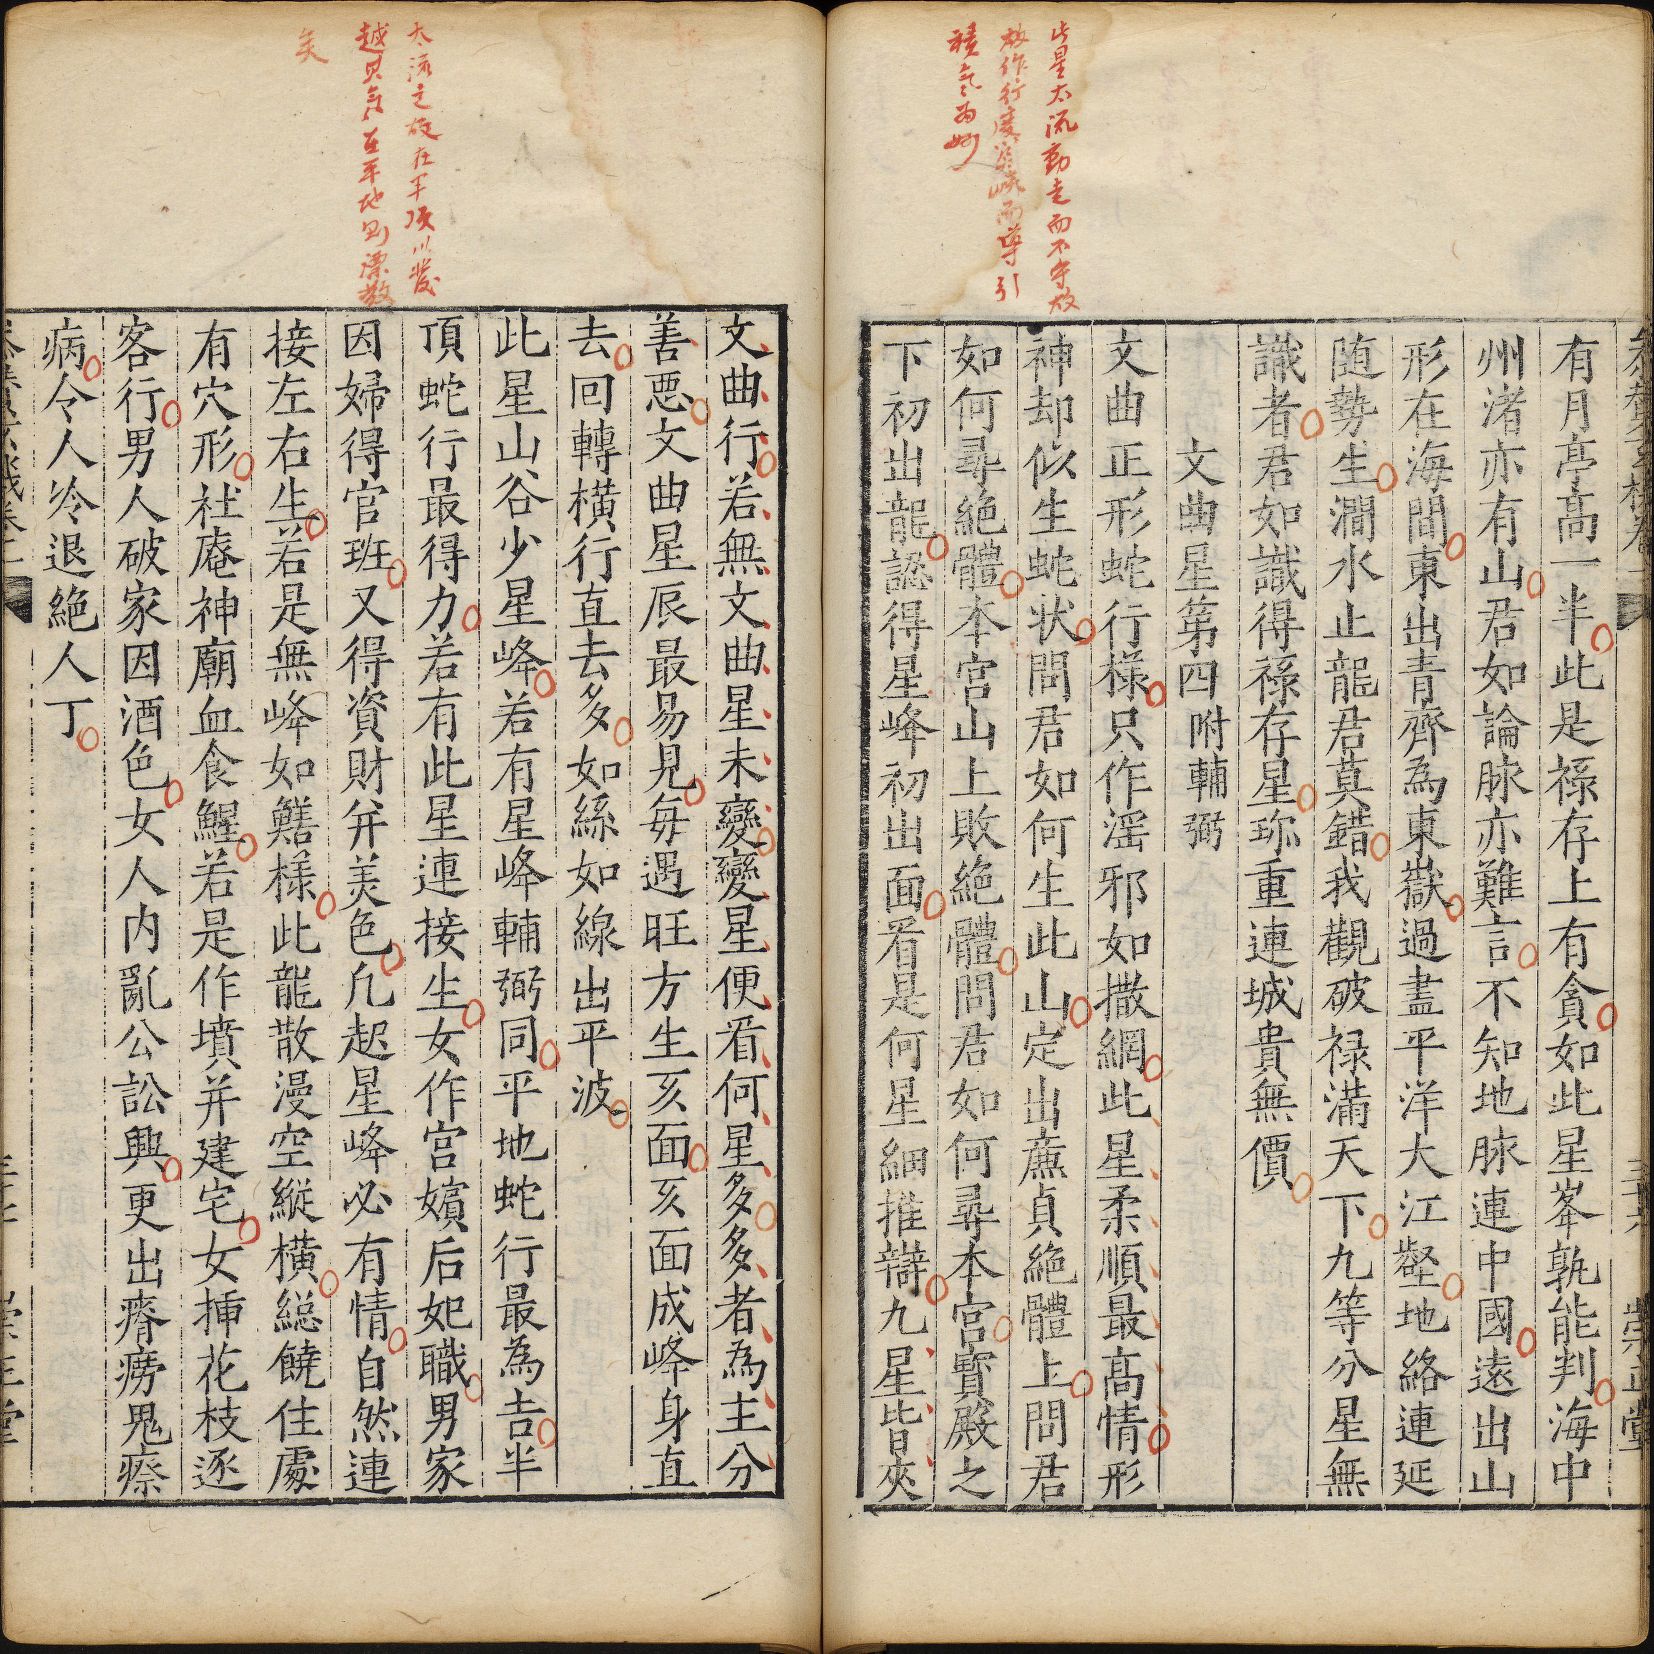 此星太流動走而不守故
故作行度
而導引
積氣為妙
有月亭高一半此是祿存上有貪如此星峯孰能判海中
州渚亦有山君如論脉亦難言不知地脉連中國遠出山
形在海間東出青齊為東嶽過盡平洋大江壑地絡連延
随勢生澗水止龍君莫錯我觀破禄滿天下九等分星無
識者君如識得祿存星珎重連城貴無價
文曲星第四 附輔弼
文曲正形蛇行樣只作滛邪如撒網此星柔順最高情形
神却似生蛇状問君如何生此山定出亷貞絶體上問君
如何尋絕體本宮山上敗絶體問君如何尋本宮寳殿之
下初出龍認得星峰初出面看是何星細推辯九星皆夾
太流之故在平頂以
越其氣在平地則漂散
矣
文曲行若無文曲星未變變星便看何星多多者為主分
善惡文曲星辰最易見每遇旺方生亥面亥面成峰身直
去回轉橫行直去多如絲如線出平波
此星山谷少星峰若有星峰輔弼同平地蛇行最為吉半
頂蛇行最得力若有此星連接生女作宫嬪后妃職男家
因婦得官班又得資財并美色凢起星峰必有情自然連
接左右生若是無峰如鱔樣此龍散漫空縱橫總饒住處
有穴形社庵神廟血食鯹若是作墳并建宅女揷花枝逐
客行男人破家因酒色女人内亂公訟興更出瘠癆鬼瘵
病令人冷退絶人丁